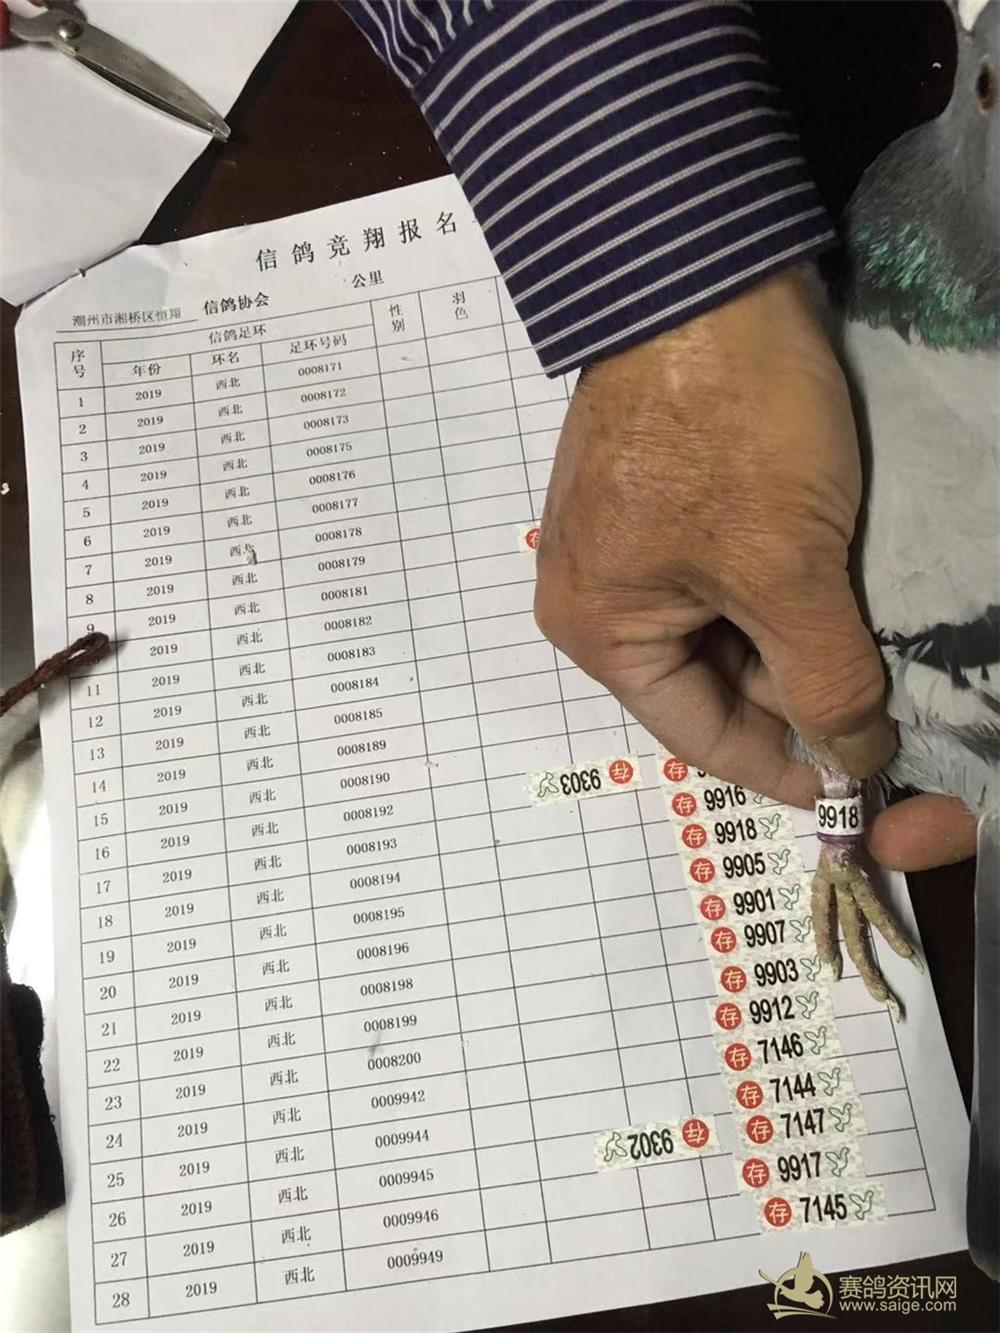 信鸽竞翔报名
潮州市湘桥区恒翔 信鸽协会 公里
序号 信鸽足环 性别 羽色
年份 环名 足环号码
1 2019 西北 0008171
2 2019 西北 0008172
3 2019 西北 0008173
4 2019 西北 0008175
5 2019 西北 0008176
6 2019 西北 0008177
7 2019 西北 0008178
8 2019 西北 0008179
9 2019 西北 0008181
2019 西北 0008182
11 2019 西北 0008183
12 2019 西北 0008184
13 2019 西北 0008185
14 2019 西北 0008189
15 2019 西北 0008190
16 2019 西北 0008192
17 2019 西北 0008193
18 2019 西北 0008194
19 2019 西北 0008195
20 2019 西北 0008196
21 2019 西北 0008198
22 2019 西北 0008199
23 2019 西北 0008200
24 2019 西北 0009942
25 2019 西北 0009944
26 2019 西北 0009945
27 2019 西北 0009946
28 2019 西北 0009949
存
存 9303
存
存 9916
存 9918
存 9905
存 9901
存 9907
存 9903
存 9912
存 7146
存 7144
存 7147
存 9302
存 9917
存 7145
9918
赛鸽资讯网
www.saige.com